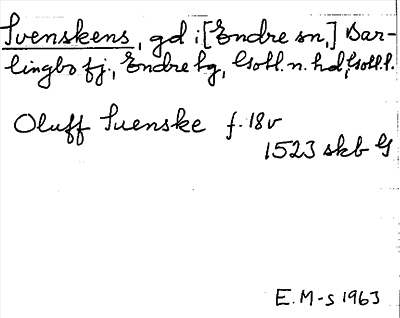 Svenskens, gd i [Endre sn,] Bar-
lingbo fj., Endre hg, Gotl. n. hd, Gotl. l.
Oluff Suenske f. 18v
1523 skb G
E. M-s 1963